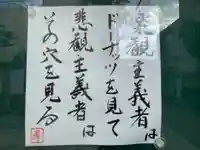 楽観主義者は
ドーナッツを見て
悲観主義者は
その穴を見る